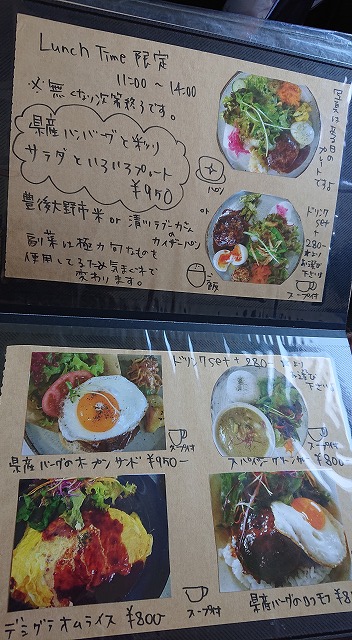 Lunch Time 限定
11:00 ~ 14:00
※無くなり次第終了です。
県産ハンバーグと彩り
サラダといろいろプレート
¥950
写真はある日の
プレートですよ
パン
or
豊後大野市米 or 清川ラブーカさん
のカイザーパン
ご飯
副菜は極力旬なものを
使用してるため気まぐれで
変わります。
ドリンク
set
+
280-
お選び
下さい
スープ付
ドリンクset + 280-
お選び
下さい
スープ付
県産バーグのオープンサンド ¥950-
スープ付
スパイシーグリーンカレー ¥800-
デミグラオムライス ¥800-
スープ付
県産バーグのロコモコ